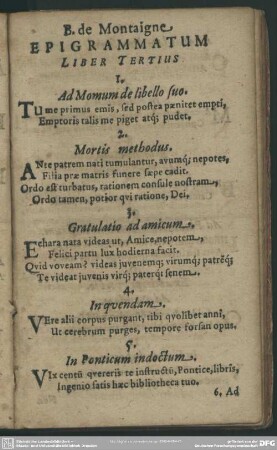 B. de Montaigne
EPIGRAMMATUM
LIBER TERTIUS
1.
Ad Momum de libello suo.
TU me primus emis, sed postea pænitet empti,
Emptoris talis me piget atq; pudet.
2.
Mortis methodus.
ANte patrem nati tumulantur, avumq; nepotes,
Filia præ matris funere sæpe cadit.
Ordo est turbatus, rationem consule nostram,
Ordo tamen, potior qvi ratione, Dei.
3.
Gratulatio ad amicum.
E chara nata videas ut, Amice, nepotem,
Felici partu lux hodierna facit.
Qvid voveam? videas juvenemq; virumq; patrēq;
Te videat juvenis virq; paterq; senem.
4.
In qvendam.
VEre alii corpus purgant, tibi qvolibet anni,
Ut cerebrum purges, tempore forsan opus.
5.
In Ponticum indoctum.
VIx centū qvereris te instructū, Pontice, libris,
Ingenio satis hæc bibliotheca tuo.
6. Ad